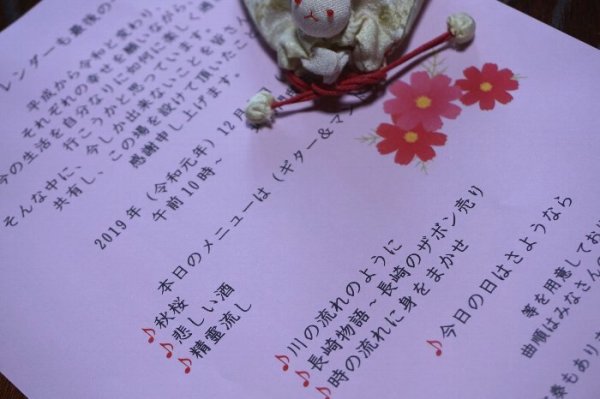 レンダーも最後の
平成から令和と変わり、
それぞれの幸せを願いながら、
今の生活を自分なりに如何に楽しく過
行こうかと思っています。
そんな中に、今しか出来ないことを皆さ
共有し、この場を設けて頂いたこと
感謝申し上げます。
2019年（令和元年）12
午前10時~
本日のメニューは（ギター&マ
♪秋桜
♪悲しい酒
♪精霊流し
♪川の流れのように
♪長崎物語~長崎のザボン売り
♪時の流れに身をまかせ
♪今日の日はさようなら
等を用意してお
曲順はみなさんの
奏もあり